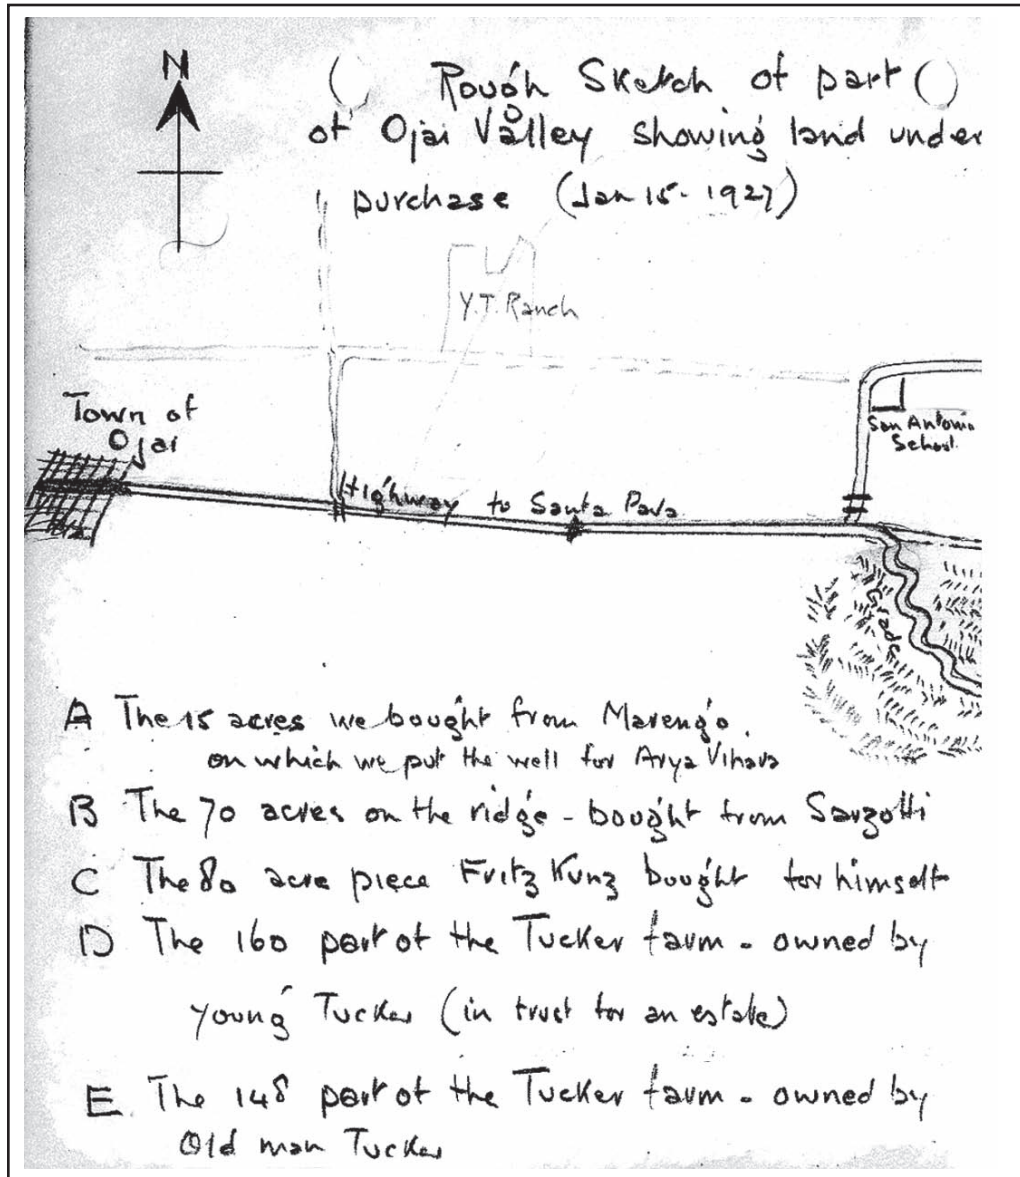 N
Rough Sketch of part
of Ojai Valley showing land under
purchase (Jan 15-1927)
Y.T. Ranch
Town of
Ojai
San Antonio
School.
Highway to Santa Paula
Grade
A The 15 acres we bought from Marengo
on which we put the well for Arya Vihara
B The 70 acres on the ridge - bought from Sarzotti
C The 80 acre piece Fritz Kunz bought for himself
D The 160 part of the Tucker farm - owned by
young Tucker (in trust for an estate)
E The 148 part of the Tucker farm - owned by
Old man Tucker